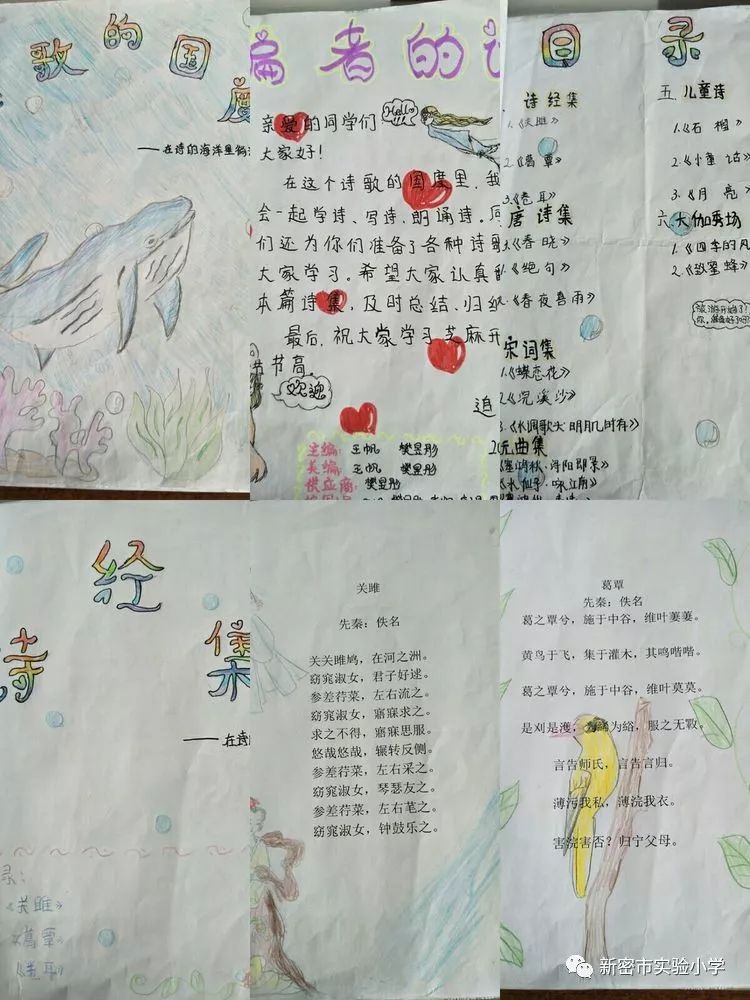 歌的国度
——在诗的海洋里
编者的
亲爱的同学们
Hello
大家好！
在这个诗歌的国度里，我
会一起学诗、写诗、朗诵诗。
们还为你们准备了各种诗歌
大家学习。希望大家认真
本篇诗集，及时总结、归纳
最后，祝大家学习芝麻开
节节高。
欢迎
主编：王帆 樊昱彤
美编：王帆 樊昱彤
供应商：樊昱彤
目录
诗经集
1.《关雎》
2.《葛覃》
3.《卷耳》
唐诗集
1.《春晓》
2.《绝句》
3.《春夜喜雨》
宋词集
1.《蝶恋花》
2.《浣溪沙》
3.《水调歌头·明月几时有》
元曲集
《塞鸿秋·浔阳即景》
《水仙子·咏江南》
五.儿童诗
1.《石榴》
2.《小童话》
3.《月亮》
六.大咖秀场
1.《四季的风
2.《致蜜蜂》
诗经集
——在诗
录：
《关雎》
《葛覃》
《卷耳》
关雎
先秦：佚名
关关雎鸠，在河之洲。
窈窕淑女，君子好逑。
参差荇菜，左右流之。
窈窕淑女，寤寐求之。
求之不得，寤寐思服。
悠哉悠哉，辗转反侧。
参差荇菜，左右采之。
窈窕淑女，琴瑟友之。
参差荇菜，左右芼之。
窈窕淑女，钟鼓乐之。
葛覃
先秦：佚名
葛之覃兮，施于中谷，维叶萋萋。
黄鸟于飞，集于灌木，其鸣喈喈。
葛之覃兮，施于中谷，维叶莫莫。
是刈是濩，为絺为绤，服之无斁。
言告师氏，言告言归。
薄污我私，薄浣我衣。
害浣害否？归宁父母。
新密市实验小学